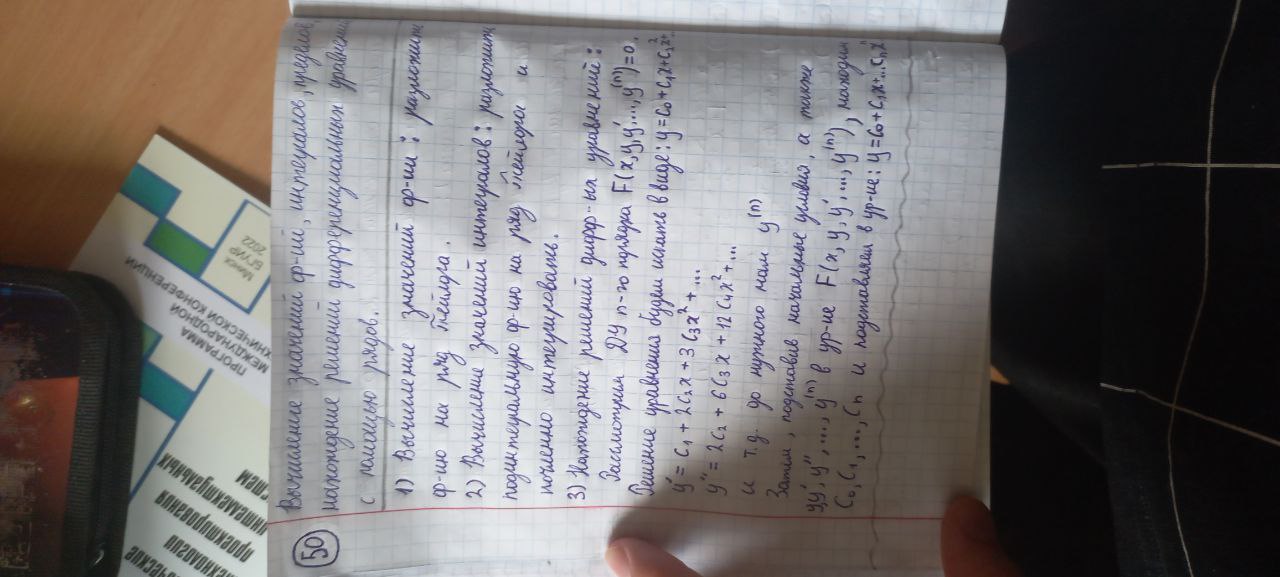 50
Вычисление значений ф-ий, интегралов, пределов,
нахождение решений дифференциальных уравнений
с помощью рядов.
1) Вычисление значений ф-ии: разложить
ф-ию на ряд Тейлора.
2) Вычисление значений интегралов: разложить
подинтегральную ф-ию на ряд Тейлора и
почленно интегрировать.
3) Нахождение решений дифф-ых уравнений:
Рассмотрим ДУ n-го порядка F(x,y,y',...,y⁽ⁿ⁾)=0.
Решение уравнения будем искать в виде: y=C₀+C₁x+C₂x²+...
y'=C₁+2C₂x+3C₃x²+...
y''=2C₂+6C₃x+12C₄x²+...
и т.д. до нужного нам y⁽ⁿ⁾
Затем, подставив начальные условия, а также
y,y',y'',...,y⁽ⁿ⁾ в ур-ие F(x,y,y',...,y⁽ⁿ⁾), находим
C₀,C₁,...,Cₙ и подставляем в ур-ие: y=C₀+C₁x+...Cₙxⁿ
ПРОГРАММА
МЕЖДУНАРОДНОЙ
ХНИЧЕСКОЙ КОНФЕРЕНЦИИ
Минск
БГУИР
2022
проектирования
систем